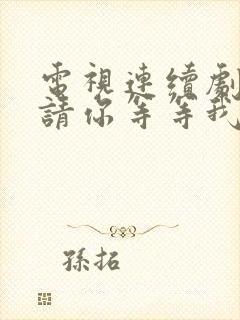 電視連續劇
請你等等我
孫拓